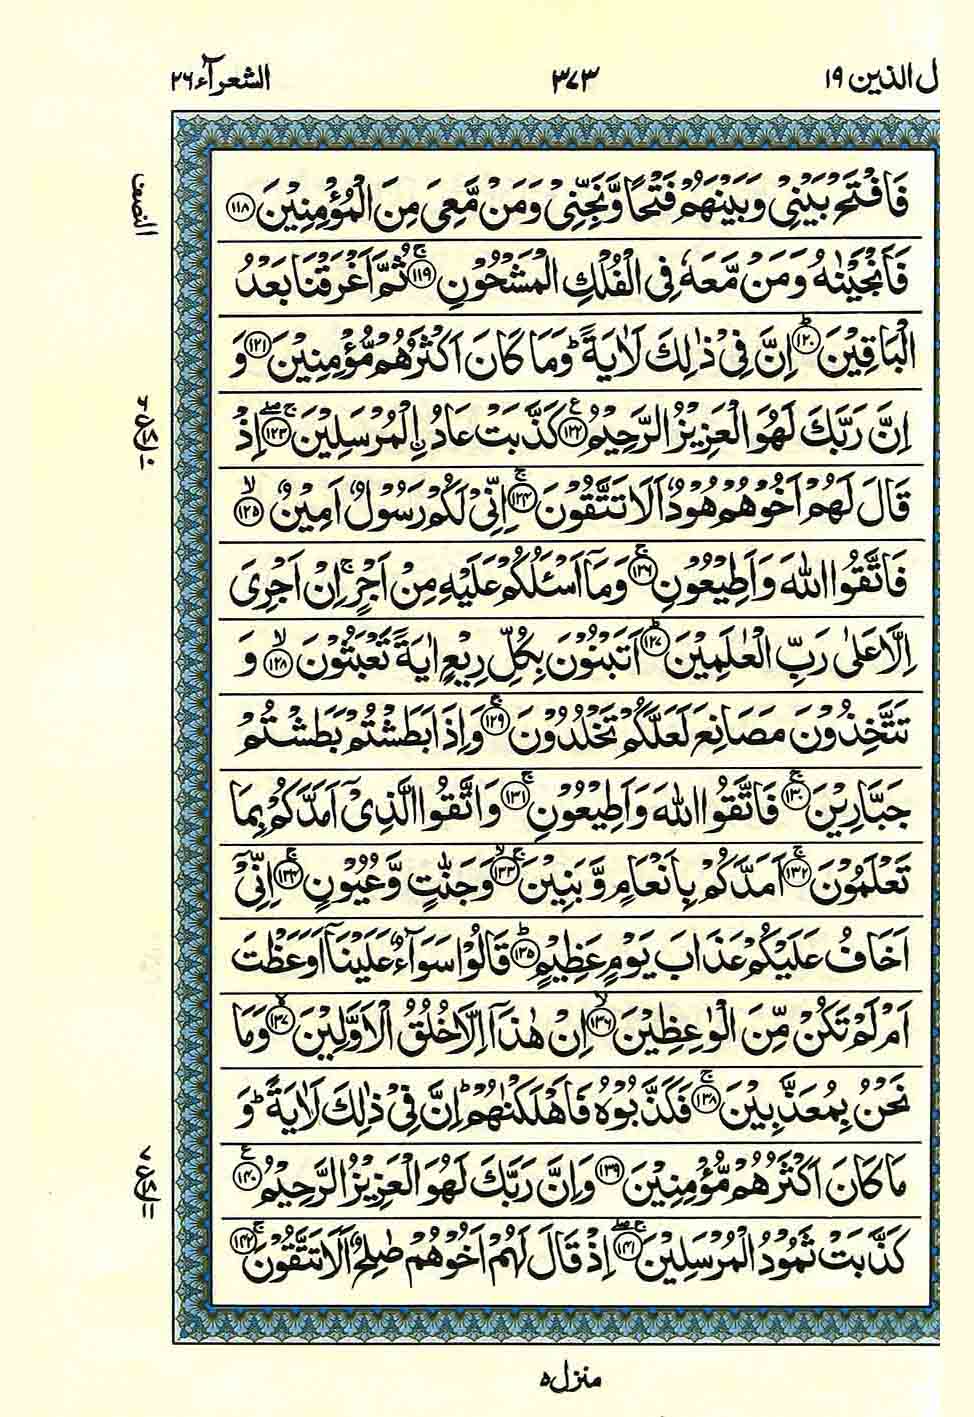 ل الذين ١٩ ٣٧٣ الشعرآء ٢٦
فَافْتَحْ بَيْنِيْ وَبَيْنَهُمْ فَتْحًا وَّنَجِّنِيْ وَمَنْ مَّعِيَ مِنَ الْمُؤْمِنِيْنَ ﴿١١٨﴾
فَاَنْجَيْنٰهُ وَمَنْ مَّعَهٗ فِي الْفُلْكِ الْمَشْحُوْنِ ﴿١١٩﴾ۚ ثُمَّ اَغْرَقْنَا بَعْدُ
الْبَاقِيْنَ ﴿١٢٠﴾ؕ اِنَّ فِيْ ذٰلِكَ لَاٰيَةً ؕ وَمَا كَانَ اَكْثَرُهُمْ مُّؤْمِنِيْنَ ﴿١٢١﴾ وَ
اِنَّ رَبَّكَ لَهُوَ الْعَزِيْزُ الرَّحِيْمُ ﴿١٢٢﴾ كَذَّبَتْ عَادُ ِۨالْمُرْسَلِيْنَ ﴿١٢٣﴾ۚۖ اِذْ
قَالَ لَهُمْ اَخُوْهُمْ هُوْدٌ اَلَا تَتَّقُوْنَ ﴿١٢٤﴾ۚ اِنِّيْ لَكُمْ رَسُوْلٌ اَمِيْنٌ ﴿١٢٥﴾ۙ
فَاتَّقُوا اللّٰهَ وَاَطِيْعُوْنِ ﴿١٢٦﴾ۚ وَمَاۤ اَسْـَٔلُكُمْ عَلَيْهِ مِنْ اَجْرٍ ۚ اِنْ اَجْرِيَ
اِلَّا عَلٰى رَبِّ الْعٰلَمِيْنَ ﴿١٢٧﴾ؕ اَتَبْنُوْنَ بِكُلِّ رِيْعٍ اٰيَةً تَعْبَثُوْنَ ﴿١٢٨﴾ۙ وَ
تَتَّخِذُوْنَ مَصَانِعَ لَعَلَّكُمْ تَخْلُدُوْنَ ﴿١٢٩﴾ۚ وَاِذَا بَطَشْتُمْ بَطَشْتُمْ
جَبَّارِيْنَ ﴿١٣٠﴾ۚ فَاتَّقُوا اللّٰهَ وَاَطِيْعُوْنِ ﴿١٣١﴾ۚ وَاتَّقُوا الَّذِيْۤ اَمَدَّكُمْ بِمَا
تَعْلَمُوْنَ ﴿١٣٢﴾ۚ اَمَدَّكُمْ بِاَنْعَامٍ وَّبَنِيْنَ ﴿١٣٣﴾ۚۙ وَجَنّٰتٍ وَّعُيُوْنٍ ﴿١٣٤﴾ۚ اِنِّيْۤ
اَخَافُ عَلَيْكُمْ عَذَابَ يَوْمٍ عَظِيْمٍ ﴿١٣٥﴾ؕ قَالُوْا سَوَآءٌ عَلَيْنَاۤ اَوَعَظْتَ
اَمْ لَمْ تَكُنْ مِّنَ الْوٰعِظِيْنَ ﴿١٣٦﴾ۙ اِنْ هٰذَاۤ اِلَّا خُلُقُ الْاَوَّلِيْنَ ﴿١٣٧﴾ۙ وَمَا
نَحْنُ بِمُعَذَّبِيْنَ ﴿١٣٨﴾ۚ فَكَذَّبُوْهُ فَاَهْلَكْنٰهُمْ ؕ اِنَّ فِيْ ذٰلِكَ لَاٰيَةً ؕ وَ
مَا كَانَ اَكْثَرُهُمْ مُّؤْمِنِيْنَ ﴿١٣٩﴾ وَاِنَّ رَبَّكَ لَهُوَ الْعَزِيْزُ الرَّحِيْمُ ﴿١٤٠﴾
كَذَّبَتْ ثَمُوْدُ الْمُرْسَلِيْنَ ﴿١٤١﴾ۚۖ اِذْ قَالَ لَهُمْ اَخُوْهُمْ صٰلِحٌ اَلَا تَتَّقُوْنَ ﴿١٤٢﴾ۚ
النصف
٦ ع ١٨ ١٠
٧ ع ١٨ ١١
منزل ٥